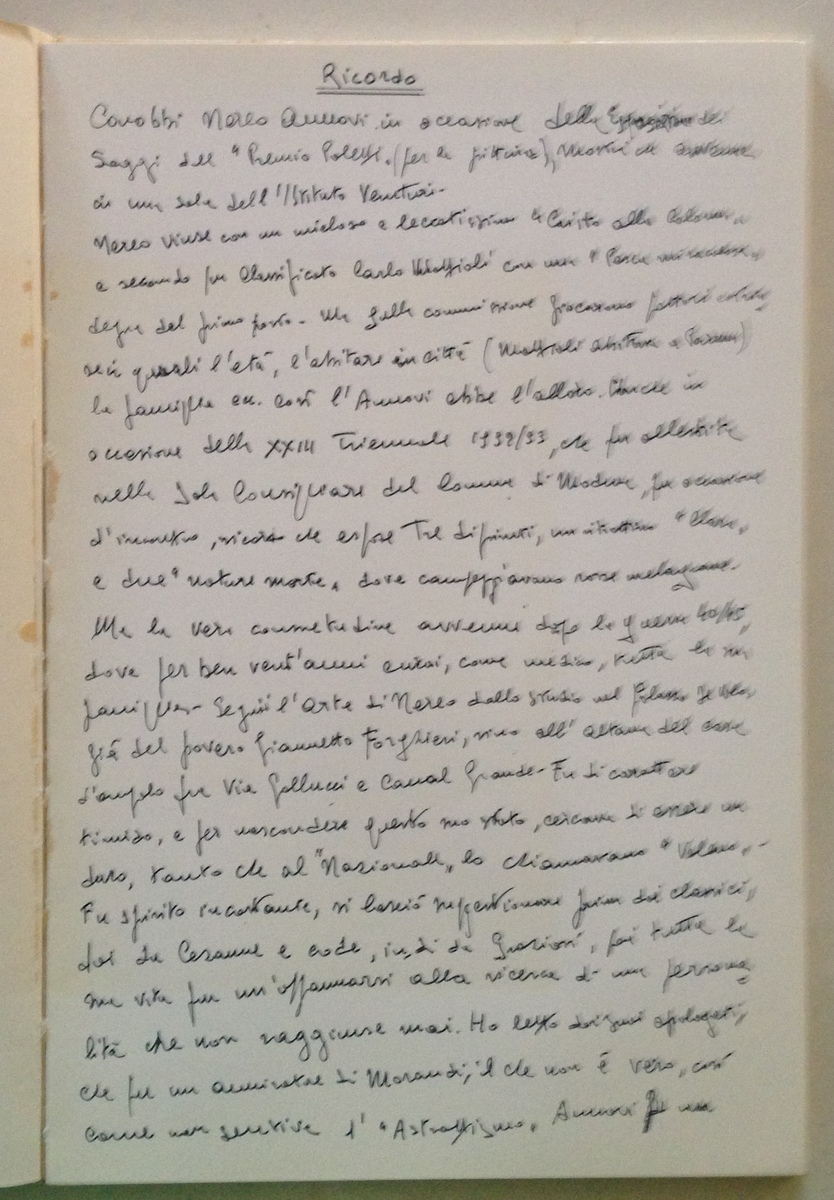 Ricordo
Conobbi Nereo Annovi in occasione della Esposizione dei
Saggi del "Premio Poletti" (per la pittura), mostra che
in una sala dell'Istituto Venturi.
Nereo vinse con un mieloso e leccatissimo "Cristo alla Colonna"
e secondo fu classificato Carlo Mattioli con una "Pesca miracolosa"
degna del primo posto. Ma sulla commissione giocarono fattori
quali l'età, l'abitare in città (Mattioli abitava a Parma)
la famiglia ecc. così l'Annovi ebbe l'alloro. Anche in
occasione della XXIII Triennale 1932/33, che fu allestita
nella Sala Consigliare del Comune di Modena, fu occasione
d'incontro, ricordo che espose Tre dipinti, un "
e due "nature morte" dove campeggiavano rosse melagrane.
Ma la vera consuetudine avvenne dopo la guerra 40/45,
dove per ben vent'anni curai, come medico, tutta la sua
famiglia. Seguii l'arte di Nereo dallo studio nel Palazzo
già del povero Giannetto Forghieri, sino all'altana del casa
d'angolo fra Via Gallucci e Canal Grande. Fu di carattere
timido, e per nascondere questo suo stato, cercava di essere un
duro, tanto che al "Nazionale" lo chiamavano "
Fu spirito incostante, si lasciò suggestionare prima dai classici,
poi da Cezanne e indi da Graziosi, poi tutta la
sua vita fu un'affannarsi alla ricerca di una persona
lità che non raggiunse mai. Ho letto dai suoi apologeti,
che fu un ammiratore di Morandi, il che non è vero, così
come non sentiva l'"Astrattismo" Annovi una